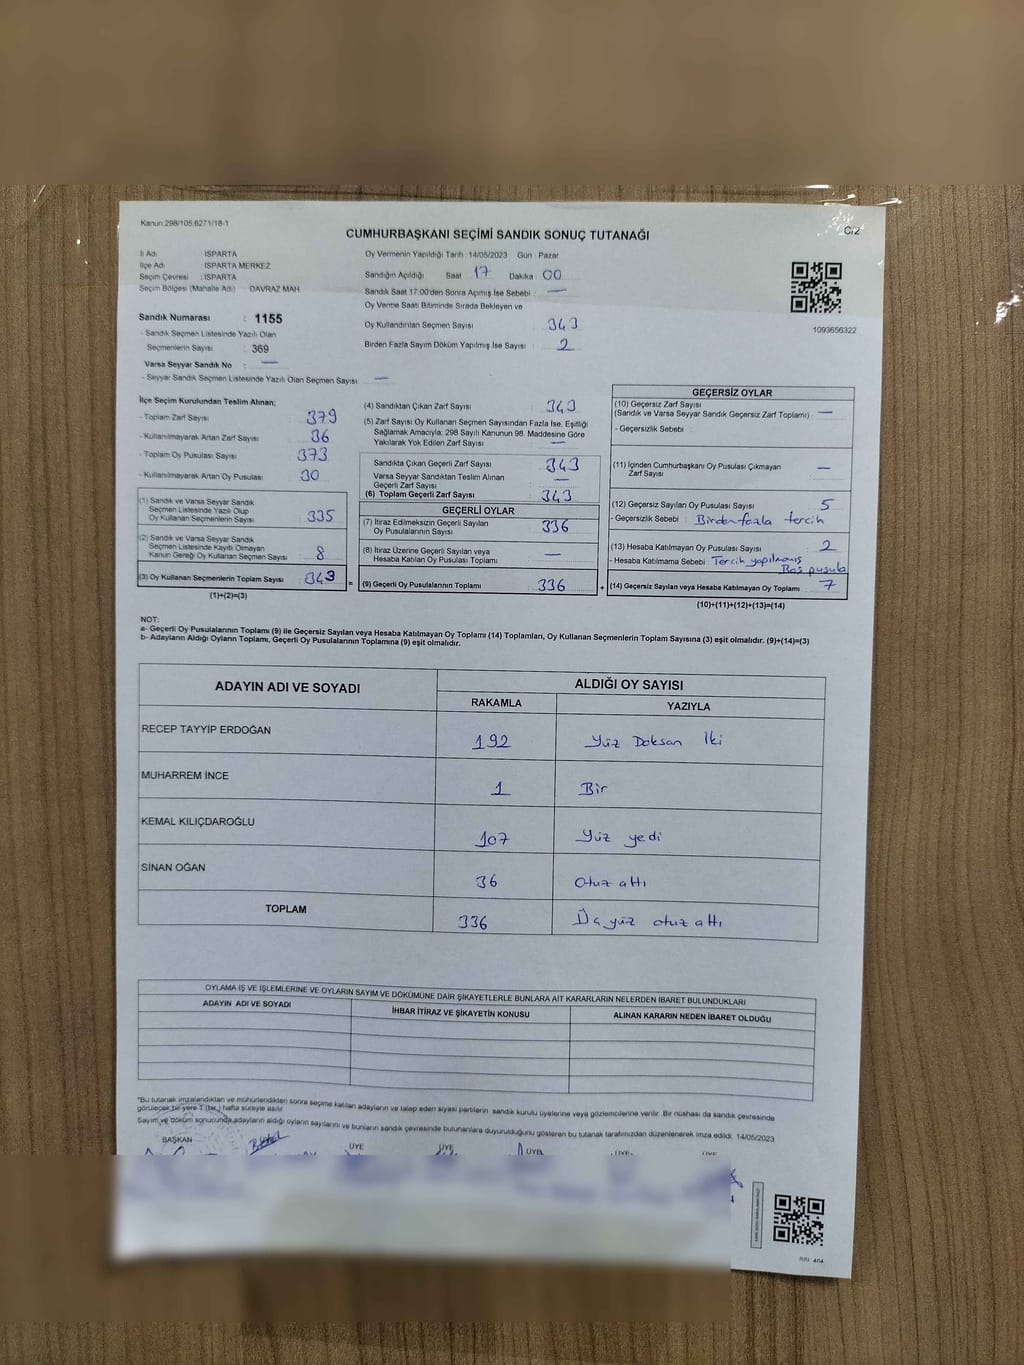 Kanun:298/105;6271/18-1
C/2
CUMHURBAŞKANI SEÇİMİ SANDIK SONUÇ TUTANAĞI
İl Adı : ISPARTA
İlçe Adı : ISPARTA MERKEZ
Seçim Çevresi : ISPARTA
Seçim Bölgesi (Mahalle Adı) : DAVRAZ MAH.
Oy Vermenin Yapıldığı Tarih :14/05/2023 Gün : Pazar
Sandığın Açıldığı Saat : 17 Dakika : 00
Sandık Saat 17:00'den Sonra Açılmış İse Sebebi : —
Oy Verme Saati Bitiminde Sırada Bekleyen ve
Oy Kullandırılan Seçmen Sayısı : 343
Birden Fazla Sayım Döküm Yapılmış İse Sayısı : 2
1093656322
Sandık Numarası : 1155
- Sandık Seçmen Listesinde Yazılı Olan
Seçmenlerin Sayısı : 369
Varsa Seyyar Sandık No : —
- Seyyar Sandık Seçmen Listesinde Yazılı Olan Seçmen Sayısı : —
İlçe Seçim Kurulundan Teslim Alınan;
- Toplam Zarf Sayısı : 379
- Kullanılmayarak Artan Zarf Sayısı : 36
- Toplam Oy Pusulası Sayısı : 373
- Kullanılmayarak Artan Oy Pusulası : 30
(1) Sandık ve Varsa Seyyar Sandık
Seçmen Listesinde Yazılı Olup
Oy Kullanan Seçmenlerin Sayısı : 335
(2) Sandık ve Varsa Seyyar Sandık
Seçmen Listesinde Kayıtlı Olmayan
Kanun Gereği Oy Kullanan Seçmen Sayısı : 8
(3) Oy Kullanan Seçmenlerin Toplam Sayısı : 343 =
(1)+(2)=(3)
(4) Sandıktan Çıkan Zarf Sayısı : 343
(5) Zarf Sayısı Oy Kullanan Seçmen Sayısından Fazla İse, Eşitliği
Sağlamak Amacıyla; 298 Sayılı Kanunun 98. Maddesine Göre
Yakılarak Yok Edilen Zarf Sayısı : —
Sandıkta Çıkan Geçerli Zarf Sayısı : 343
Varsa Seyyar Sandıktan Teslim Alınan
Geçerli Zarf Sayısı : —
(6) Toplam Geçerli Zarf Sayısı : 343
GEÇERLİ OYLAR
(7) İtiraz Edilmeksizin Geçerli Sayılan
Oy Pusulalarının Sayısı : 336
(8) İtiraz Üzerine Geçerli Sayılan veya
Hesaba Katılan Oy Pusulası Toplamı : —
(9) Geçerli Oy Pusulalarının Toplamı : 336 +
GEÇERSİZ OYLAR
(10) Geçersiz Zarf Sayısı :
(Sandık ve Varsa Seyyar Sandık Geçersiz Zarf Toplamı) —
- Geçersizlik Sebebi :
(11) İçinden Cumhurbaşkanı Oy Pusulası Çıkmayan
Zarf Sayısı : —
(12) Geçersiz Sayılan Oy Pusulası Sayısı : 5
- Geçersizlik Sebebi : Birden fazla tercih
(13) Hesaba Katılmayan Oy Pusulası Sayısı : 2
- Hesaba Katılmama Sebebi : Tercih yapılmamış
Boş pusula
(14) Geçersiz Sayılan veya Hesaba Katılmayan Oy Toplamı : 7
(10)+(11)+(12)+(13)=(14)
NOT:
a- Geçerli Oy Pusulalarının Toplamı (9) ile Geçersiz Sayılan veya Hesaba Katılmayan Oy Toplamı (14) Toplamları, Oy Kullanan Seçmenlerin Toplam Sayısına (3) eşit olmalıdır. (9)+(14)=(3)
b- Adayların Aldığı Oyların Toplamı, Geçerli Oy Pusulalarının Toplamına (9) eşit olmalıdır.
ADAYIN ADI VE SOYADI
ALDIĞI OY SAYISI
RAKAMLA YAZIYLA
RECEP TAYYİP ERDOĞAN 192 Yüz Doksan İki
MUHARREM İNCE 1 Bir
KEMAL KILIÇDAROĞLU 107 Yüz yedi
SİNAN OĞAN 36 Otuz altı
TOPLAM 336 Üç yüz otuz altı
OYLAMA İŞ VE İŞLEMLERİNE VE OYLARIN SAYIM VE DÖKÜMÜNE DAİR ŞİKAYETLERLE BUNLARA AİT KARARLARIN NELERDEN İBARET BULUNDUKLARI
ADAYIN ADI VE SOYADI İHBAR İTİRAZ VE ŞİKAYETİN KONUSU ALINAN KARARIN NEDEN İBARET OLDUĞU
*Bu tutanak imzalandıktan ve mühürlendikten sonra seçime katılan adayların ve talep eden siyasi partilerin sandık kurulu üyelerine veya gözlemcilerine verilir. Bir nüshası da sandık çevresinde
görülecek bir yere 1 (bir) hafta süreyle asılır.
Sayım ve döküm sonucunda adayların aldığı oyların sayılarını ve bunların sandık çevresinde bulunanlara duyurulduğunu gösteren bu tutanak tarafımızdan düzenlenerek imza edildi. 14/05/2023
BAŞKAN ÜYE ÜYE ÜYE ÜYE ÜYE